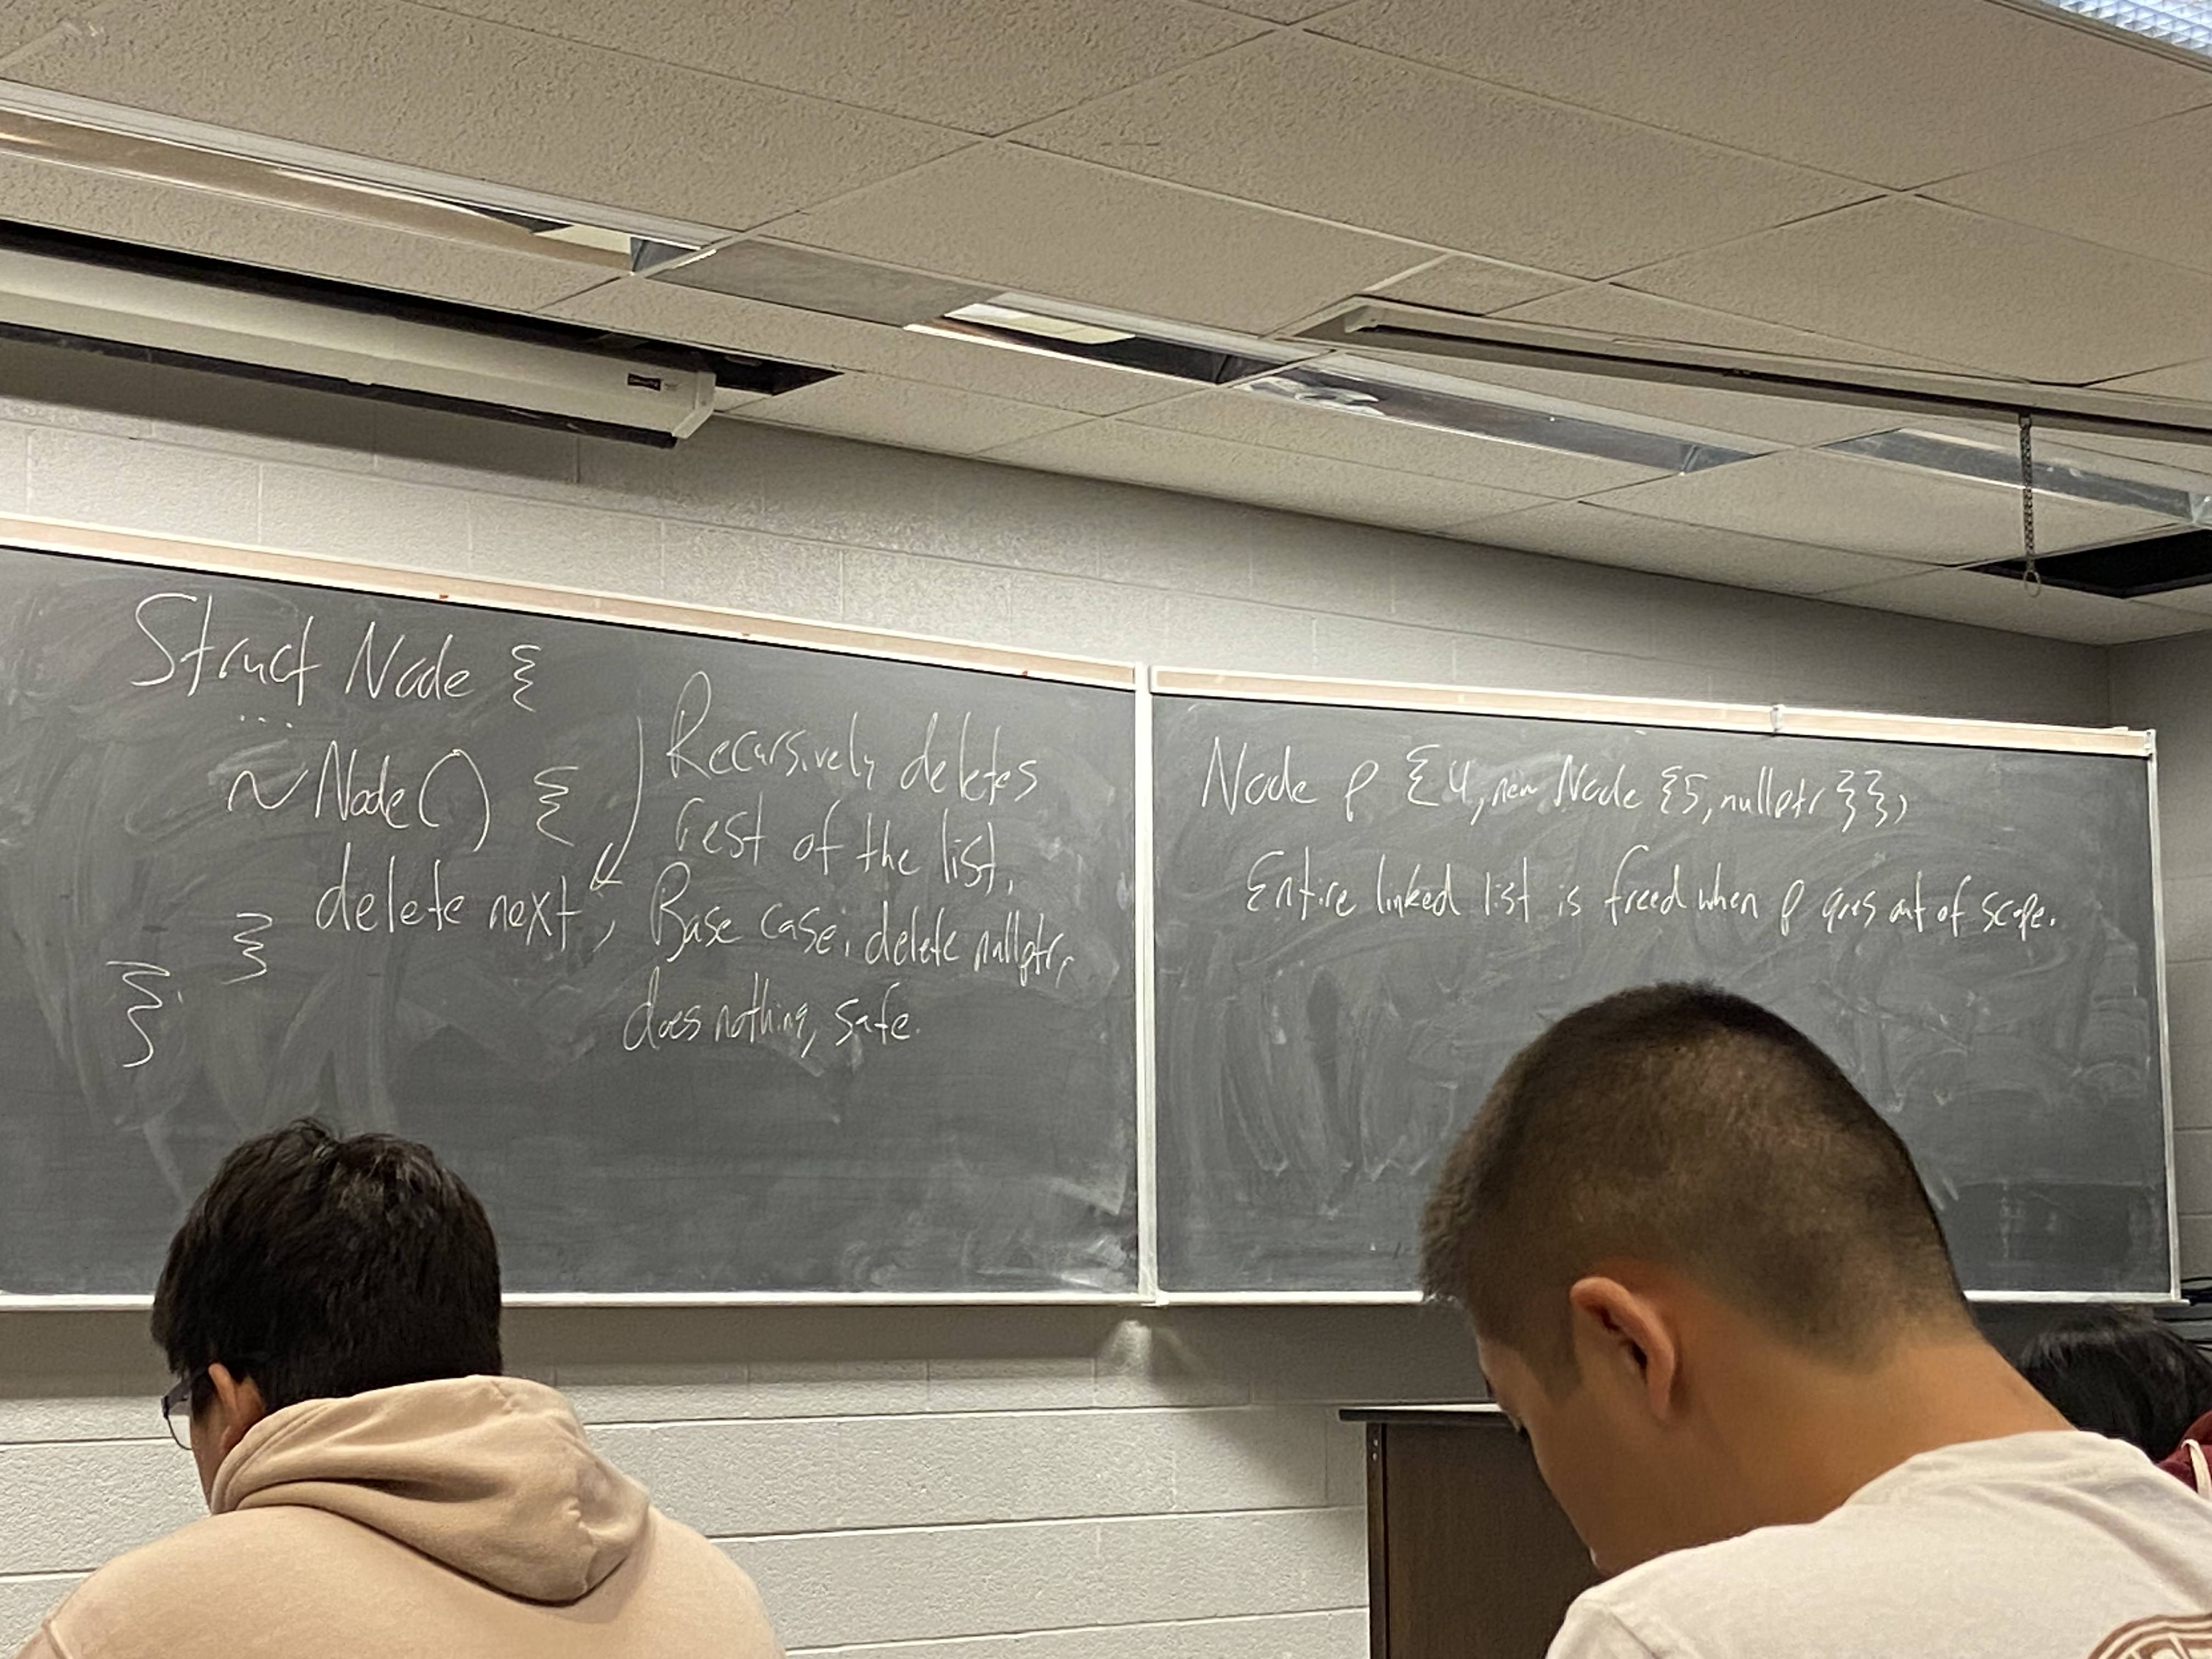 Struct Node {
...
~Node() {
delete next;
}
};
Recursively deletes
rest of the list.
Base case: delete nullptr,
does nothing, safe.
Node p {4, new Node {5, nullptr}};
Entire linked list is freed when p goes out of scope.